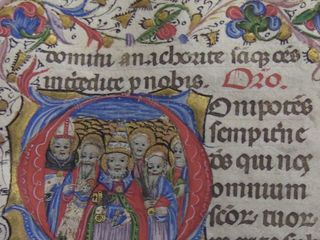 domini anachorite s̄cīq̨ o̅e̅s
intercedite p nobis. Oro.
Onipotēs
sempitene
d̄s qui nos
omnium
scōꝝ tuoꝝ